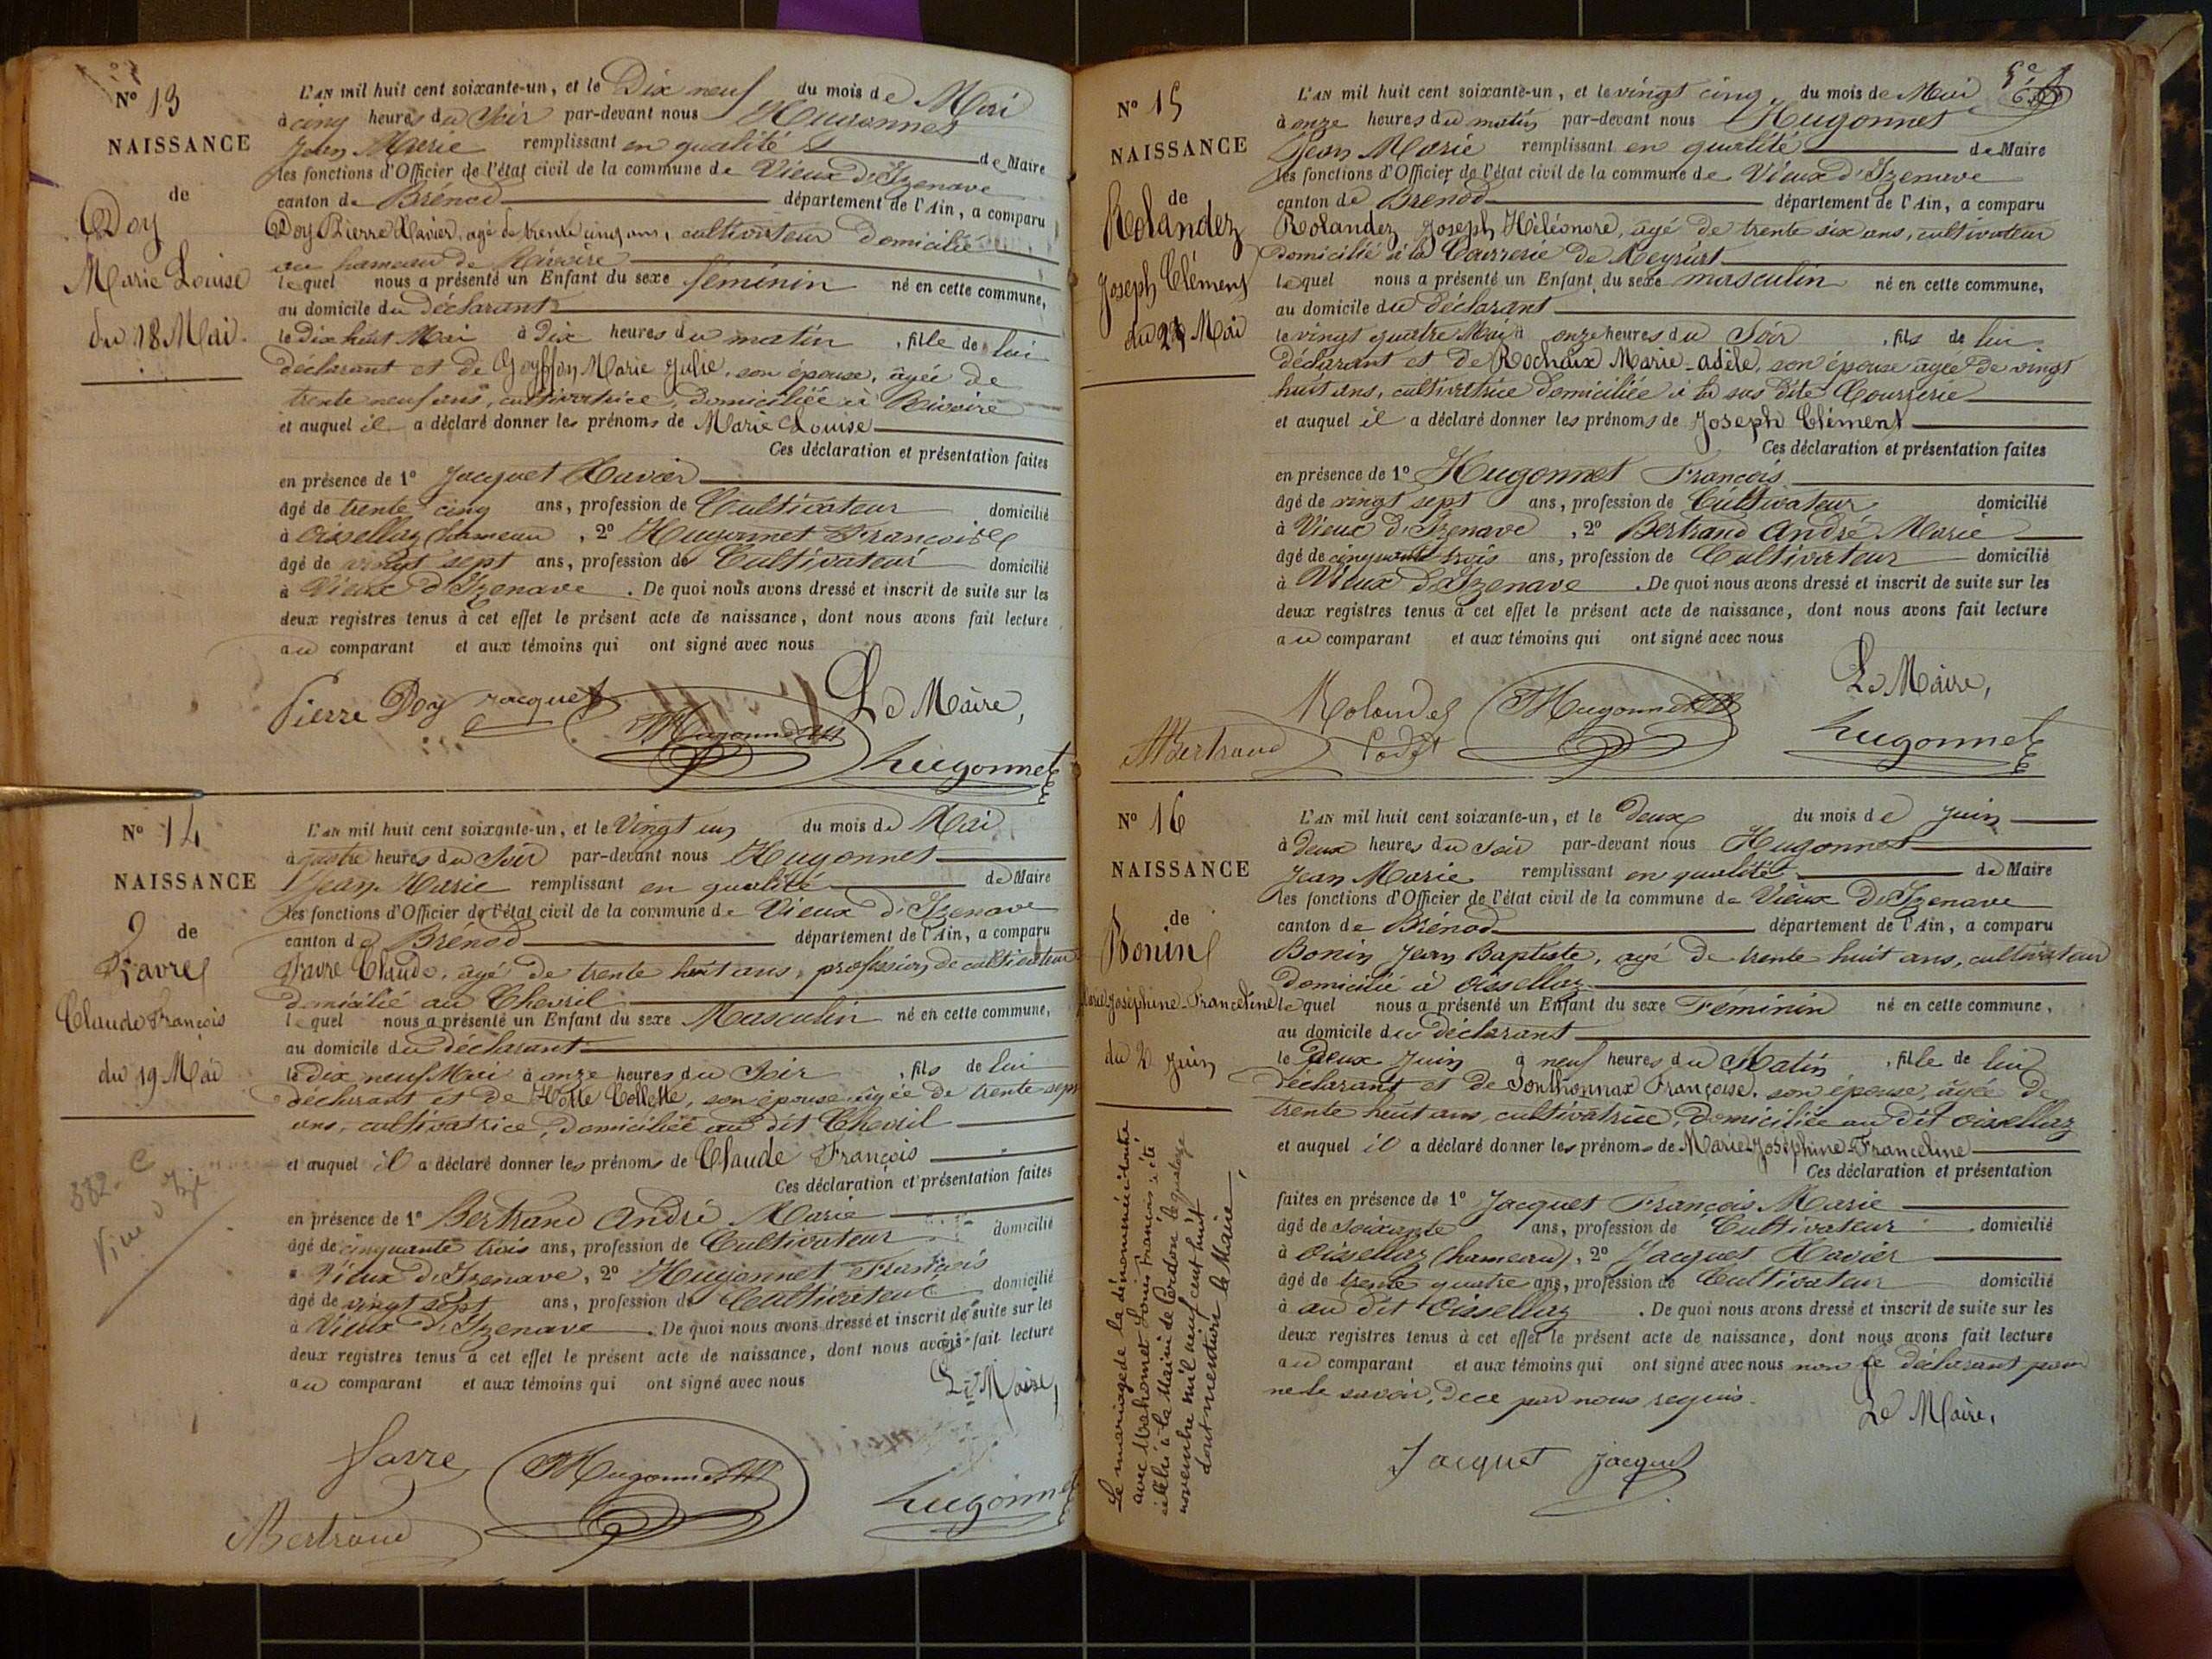 N° 13
NAISSANCE
de
Doy
Marie Louise
du 18 Mai.
L'AN mil huit cent soixante-un, et le Dix neuf du mois de Mai
à cinq heures du Soir par-devant nous Hugonnet
Jean Marie remplissant en qualité de Maire
les fonctions d'Officier de l'état civil de la commune de Vieux D'Izenave
canton de Brénod département de l'Ain, a comparu
Doy Pierre Xavier, agé de trente cinq ans, cultivateur domicilié
au hameau de Rivoire
lequel nous a présenté un Enfant du sexe féminin né en cette commune,
au domicile du déclarant
le Dix huit Mai à Dix heures du matin, fille de lui
déclarant et de Goyffon Marie Julie, son épouse, âgée de
trente neuf ans, cultivatrice, domiciliée à Rivoire
et auquel il a déclaré donner les prénoms de Marie Louise
Ces déclaration et présentation faites
en présence de 1° Jacquet Xavier
âgé de trente cinq ans, profession de Cultivateur domicilié
à Oissellaz (hameau, 2° Hugonnet François
âgé de vingt sept ans, profession de Cultivateur domicilié
à Vieux d'Izenave. De quoi nous avons dressé et inscrit de suite sur les
deux registres tenus à cet effet le présent acte de naissance, dont nous avons fait lecture
au comparant et aux témoins qui ont signé avec nous
Le Maire,
Pierre Doy Jacquet Hugonnet
hugonnet
N° 14
NAISSANCE
de
Favre
Claude François
du 19 Mai
L'AN mil huit cent soixante-un, et le Vingt un du mois de Mai
à quatre heures du Soir par-devant nous Hugonnet
Jean Marie remplissant en qualité de Maire
les fonctions d'Officier de l'état civil de la commune de Vieux d'Izenave
canton de Brénod département de l'Ain, a comparu
Favre Claude, agé de trente huit ans, profession de cultivateur
domicilié au Chevril
lequel nous a présenté un Enfant du sexe Masculin né en cette commune,
au domicile du déclarant
le dix neuf Mai à onze heures du Soir, fils de lui
déclarant et de Hotte Collette, son épouse âgée de trente sept
ans, cultivatrice, domiciliée au dit Chevril
et auquel il a déclaré donner les prénoms de Claude François
Ces déclaration et présentation faites
en présence de 1° Bertrand André Marie
âgé de cinquante trois ans, profession de Cultivateur domicilié
à Vieux D'Izenave, 2° Hugonnet François
âgé de vingt sept ans, profession de Cultivateur domicilié
à Vieux D'Izenave. De quoi nous avons dressé et inscrit de suite sur les
deux registres tenus à cet effet le présent acte de naissance, dont nous avons fait lecture
au comparant et aux témoins qui ont signé avec nous
Le Maire,
favre Hugonnet
Bertrand hugonnet
N° 15
NAISSANCE
de
Rolandez
Joseph Clément
du 24 Mai
L'AN mil huit cent soixante-un, et le vingt cinq du mois de Mai
à onze heures du matin par-devant nous Hugonnet
Jean Marie remplissant en qualité de Maire
les fonctions d'Officier de l'état civil de la commune de Vieux d'Izenave
canton de Brénod département de l'Ain, a comparu
Rolandez Joseph Héléonore, agé de trente six ans, cultivateur
domicilié à la Courrerie de Meyriat
lequel nous a présenté un Enfant du sexe masculin né en cette commune,
au domicile du déclarant
le vingt quatre Mai à onze heures du Soir, fils de lui
déclarant et de Rochaix Marie-adèle, son épouse agée de vingt
huit ans, cultivatrice domiciliée à la sus dite Courrerie
et auquel il a déclaré donner les prénoms de Joseph Clément
Ces déclaration et présentation faites
en présence de 1° Hugonnet François
âgé de vingt sept ans, profession de Cultivateur domicilié
à Vieux d'Izenave, 2° Bertrand André Marie
âgé de cinquante trois ans, profession de Cultivateur domicilié
à Vieux d'Izenave. De quoi nous avons dressé et inscrit de suite sur les
deux registres tenus à cet effet le présent acte de naissance, dont nous avons fait lecture
au comparant et aux témoins qui ont signé avec nous
Le Maire,
Rolandez Hugonnet
Bertrand hugonnet
N° 16
NAISSANCE
de
Bonin
Marie Joséphine Franceline
du 2 Juin
Le mariage de la dénommée ci-contre
avec Mahomet Louis François a été
célébré à la Mairie de Cerdon le quatorze
novembre mil neuf cent huit
dont mention le Maire
L'AN mil huit cent soixante-un, et le Deux du mois de Juin
à Deux heures du Soir par-devant nous Hugonnet
Jean Marie remplissant en qualité de Maire
les fonctions d'Officier de l'état civil de la commune de Vieux D'Izenave
canton de Brénod département de l'Ain, a comparu
Bonin Jean Baptiste, agé de trente huit ans, cultivateur
domicilié à Oissellaz
lequel nous a présenté un Enfant du sexe Féminin né en cette commune,
au domicile du déclarant
le Deux Juin à neuf heures du Matin, fille de lui
déclarant et de Sonthonnax Françoise, son épouse, âgée de
trente huit ans, cultivatrice, domiciliée au dit Oissellaz
et auquel il a déclaré donner les prénoms de Marie Joséphine Franceline
Ces déclaration et présentation
faites en présence de 1° Jacquet François Marie
âgé de Soixante ans, profession de Cultivateur domicilié
à Oissellaz (hameau), 2° Jacquet Xavier
âgé de trente quatre ans, profession de Cultivateur domicilié
à au dit Oissellaz. De quoi nous avons dressé et inscrit de suite sur les
deux registres tenus à cet effet le présent acte de naissance, dont nous avons fait lecture
au comparant et aux témoins qui ont signé avec nous non le déclarant pour
ne le savoir, de ce par nous requis.
Le Maire,
Jacquet Jacquet